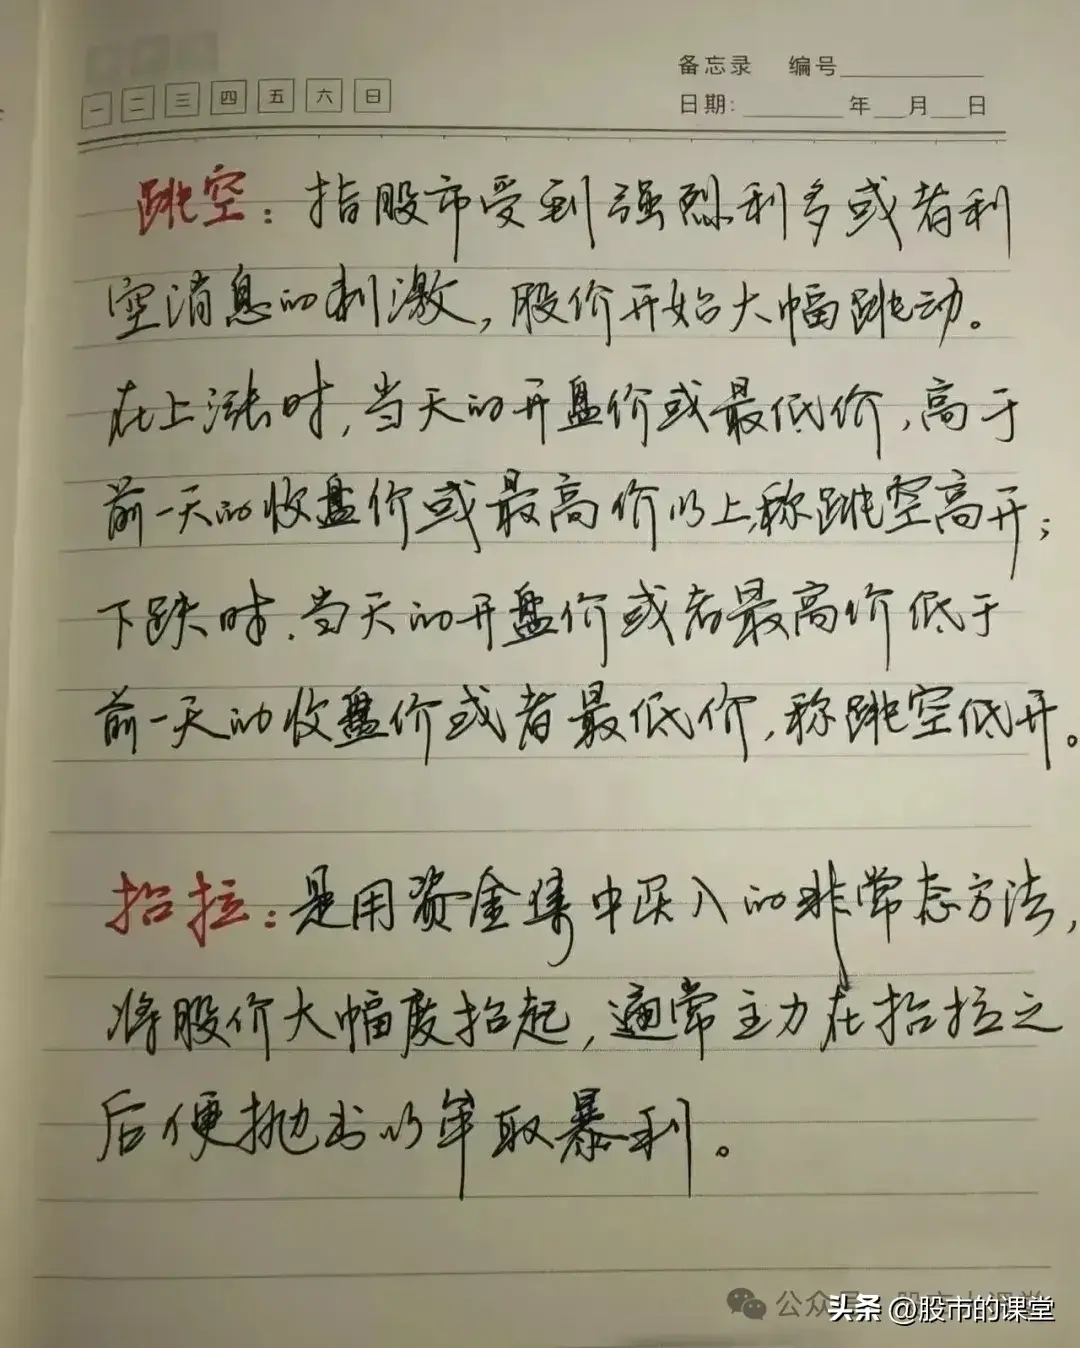 备忘录 编号
一 二 三 四 五 六 日
日期: 年 月 日
跳空：指股市受到强烈利多或者利
空消息的刺激，股价开始大幅跳动。
在上涨时，当天的开盘价或最低价，高于
前一天的收盘价或最高价以上，称跳空高开；
下跌时，当天的开盘价或者最高价低于
前一天的收盘价或者最低价，称跳空低开。
抬拉：是用资金集中买入的非常态方法，
将股价大幅度抬起，通常主力在抬拉之
后便抛出以牟取暴利。
公众
头条 @股市的课堂